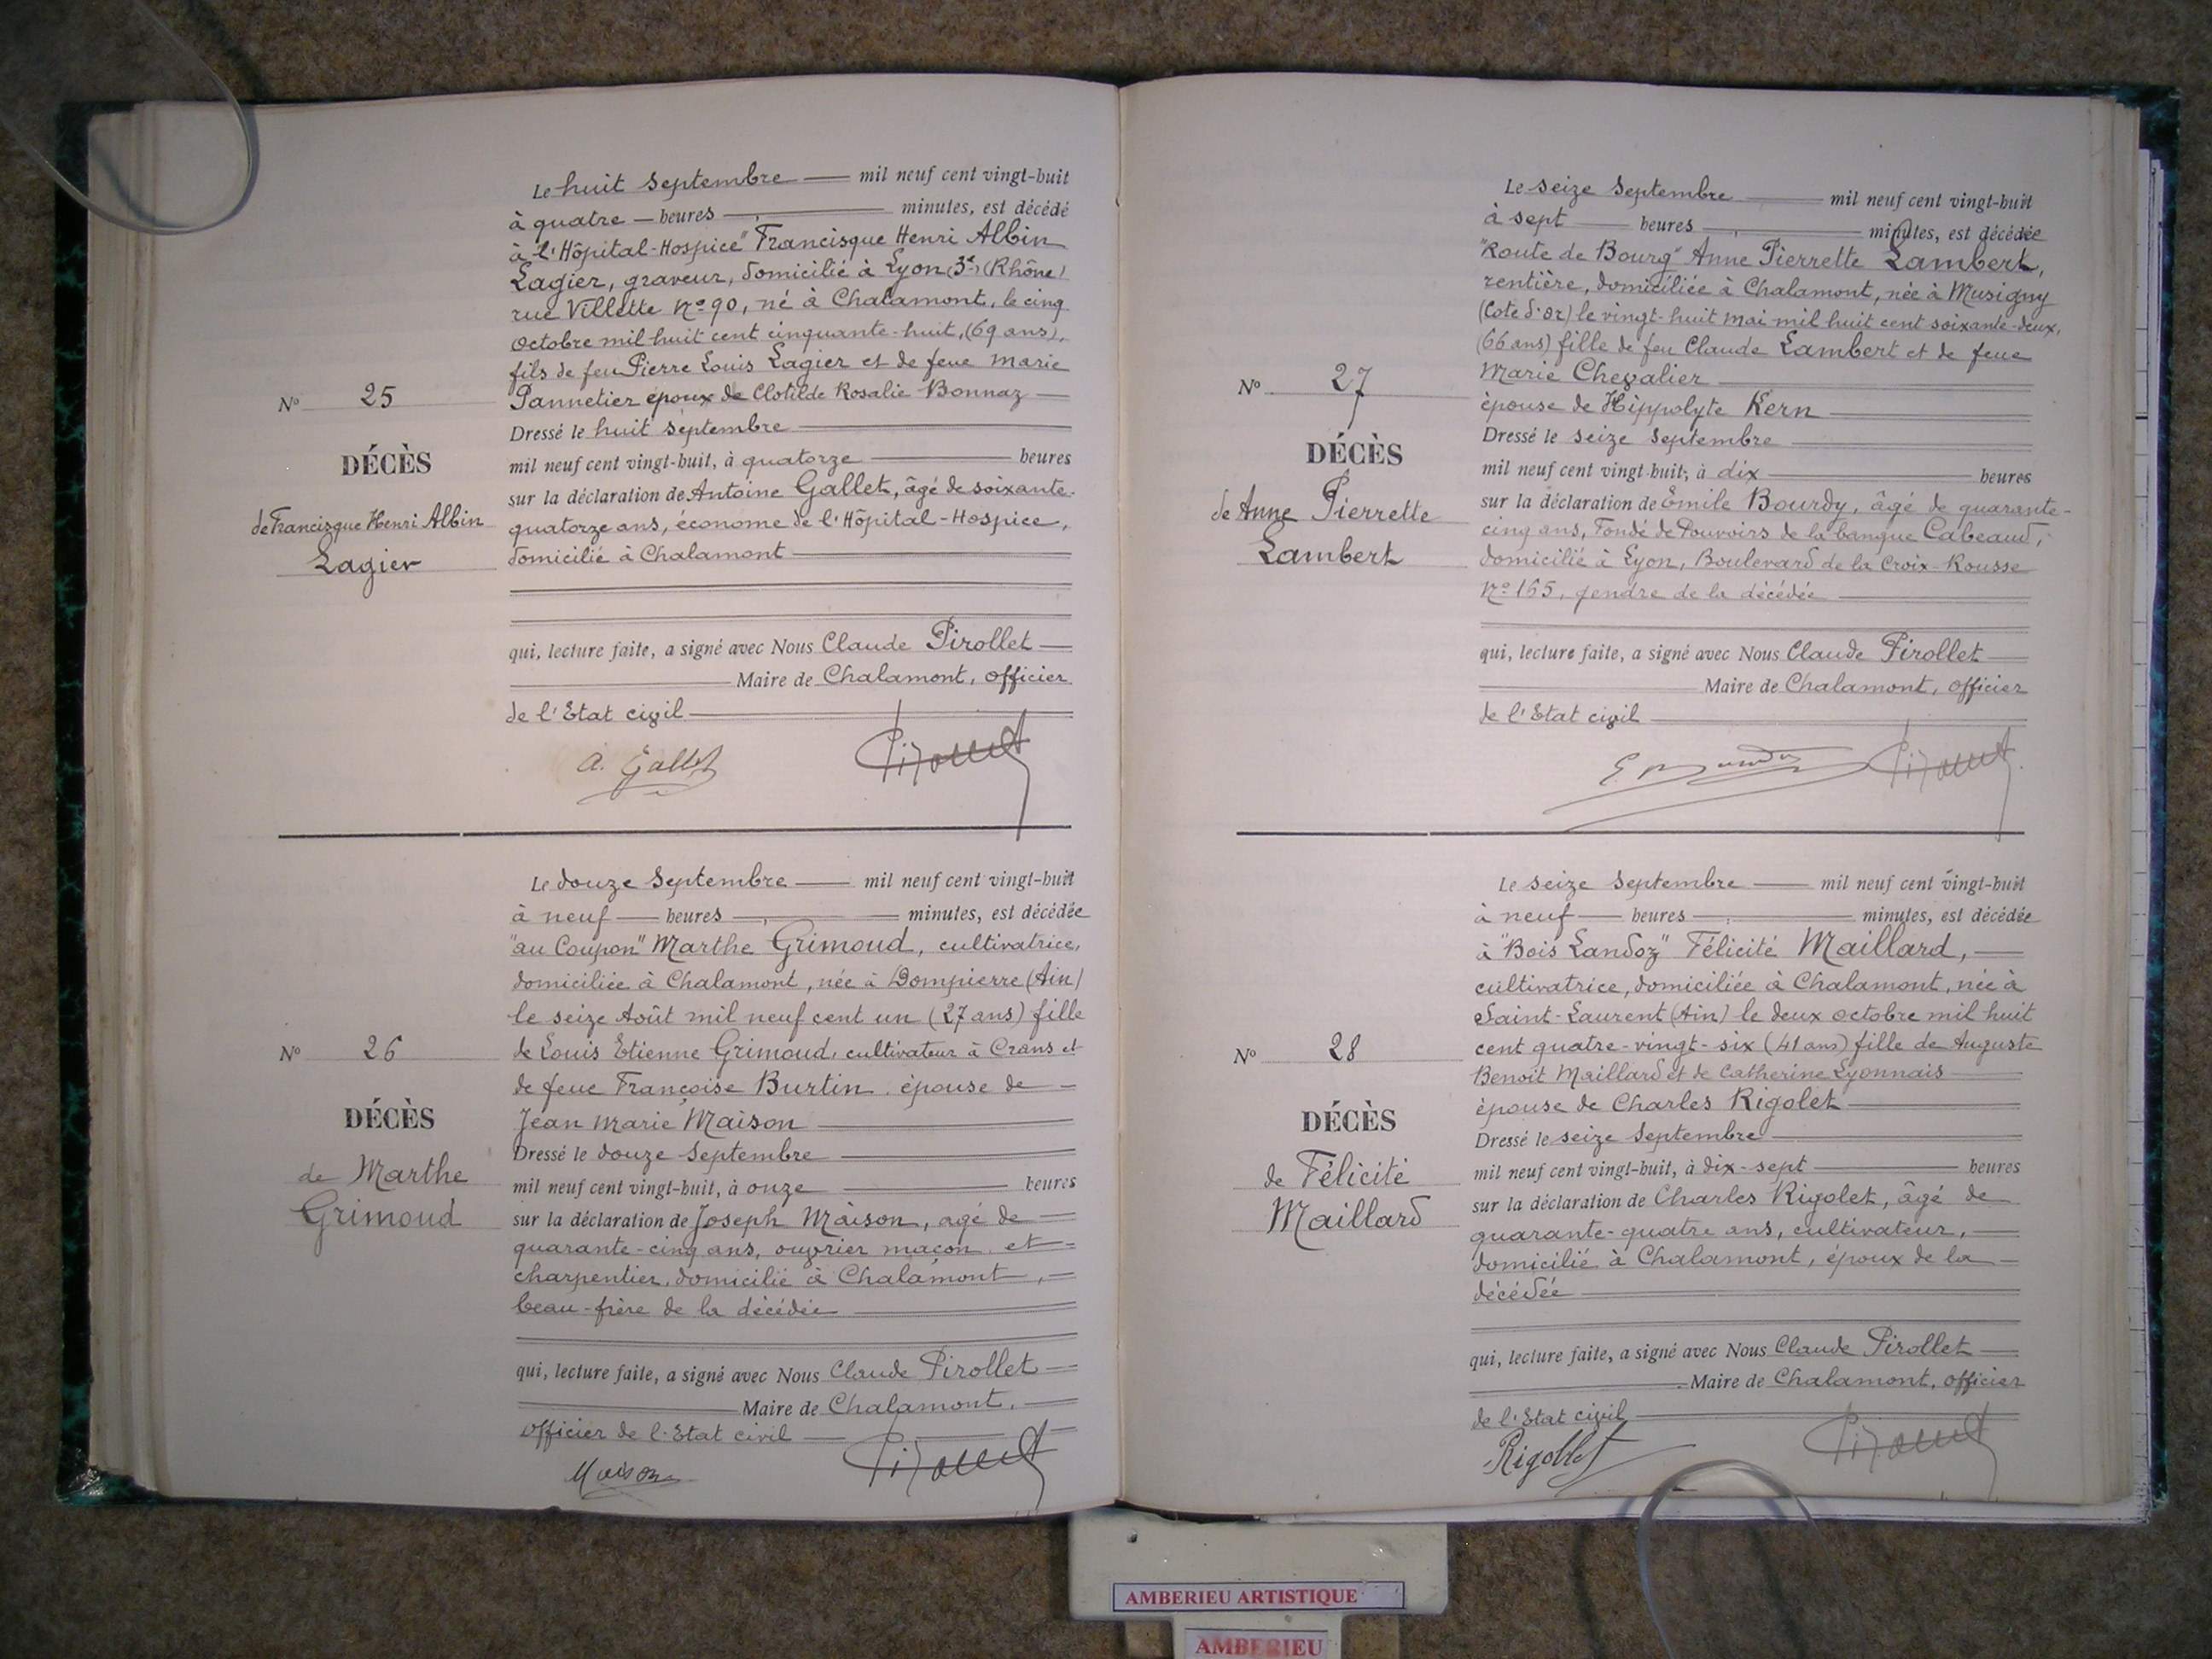 Le huit Septembre mil neuf cent vingt-huit
à quatre heures minutes, est décédé
à "l'Hôpital-Hospice" Francisque Henri Albin
Lagier, graveur, domicilié à Lyon (3e) (Rhône)
rue Villette No 90, né à Chalamont, le cinq
Octobre mil huit cent cinquante-huit, (69 ans),
fils de feu Pierre Louis Lagier et de feue Marie
Pannetier époux de Clotilde Rosalie Bonnaz
Dressé le huit septembre
mil neuf cent vingt-huit, à quatorze heures
sur la déclaration de Antoine Gallet, âgé de soixante-
quatorze ans, économe de l'Hôpital-Hospice,
domicilié à Chalamont
qui, lecture faite, a signé avec Nous Claude Pirollet
Maire de Chalamont, officier
de l'Etat civil
A. Gallet Pirollet
No 25
DÉCÈS
de Francisque Henri Albin
Lagier
Le douze Septembre mil neuf cent vingt-huit
à neuf heures minutes, est décédée
"au Coupon" Marthe Grimoud, cultivatrice,
domiciliée à Chalamont, née à Dompierre (Ain)
le seize Août mil neuf cent un (27 ans) fille
de Louis Etienne Grimoud, cultivateur à Crans et
de feue Françoise Burtin, épouse de
Jean Marie Maison
Dressé le douze Septembre
mil neuf cent vingt-huit, à onze heures
sur la déclaration de Joseph Maison, agé de
quarante-cinq ans, ouvrier maçon et
charpentier, domicilié à Chalamont,
beau-frère de la décédée
qui, lecture faite, a signé avec Nous Claude Pirollet
Maire de Chalamont,
officier de l'Etat civil
Maison Pirollet
No 26
DÉCÈS
de Marthe
Grimoud
Le seize Septembre mil neuf cent vingt-huit
à sept heures minutes, est décédée
"Route de Bourg" Anne Pierrette Lambert,
rentière, domiciliée à Chalamont, née à Musigny
(Cote d'or) le vingt-huit Mai mil huit cent soixante-deux,
(66 ans) fille de feu Claude Lambert et de feue
Marie Chevalier
épouse de Hippolyte Kern
Dressé le seize Septembre
mil neuf cent vingt-huit, à dix heures
sur la déclaration de Emile Bourdy, âgé de quarante-
cinq ans, Fondé de Pouvoirs de la banque Cabeaud,
domicilié à Lyon, Boulevard de la Croix-Rousse
No 165, gendre de la décédée
qui, lecture faite, a signé avec Nous Claude Pirollet
Maire de Chalamont, officier
de l'Etat civil
Pirollet
No 27
DÉCÈS
de Anne Pierrette
Lambert
Le seize Septembre mil neuf cent vingt-huit
à neuf heures minutes, est décédée
à "Bois Landoz" Félicité Maillard,
cultivatrice, domiciliée à Chalamont, née à
Saint-Laurent (Ain) le deux octobre mil huit
cent quatre-vingt-six (41 ans) fille de Auguste
Benoit Maillard et de Catherine Lyonnais
épouse de Charles Rigolet
Dressé le seize Septembre
mil neuf cent vingt-huit, à dix-sept heures
sur la déclaration de Charles Rigolet, âgé de
quarante-quatre ans, cultivateur,
domicilié à Chalamont, époux de la
décédée
qui, lecture faite, a signé avec Nous Claude Pirollet
Maire de Chalamont, officier
de l'Etat civil
Rigollet Pirollet
No 28
DÉCÈS
de Félicité
Maillard
AMBERIEU ARTISTIQUE
AMBERIEU